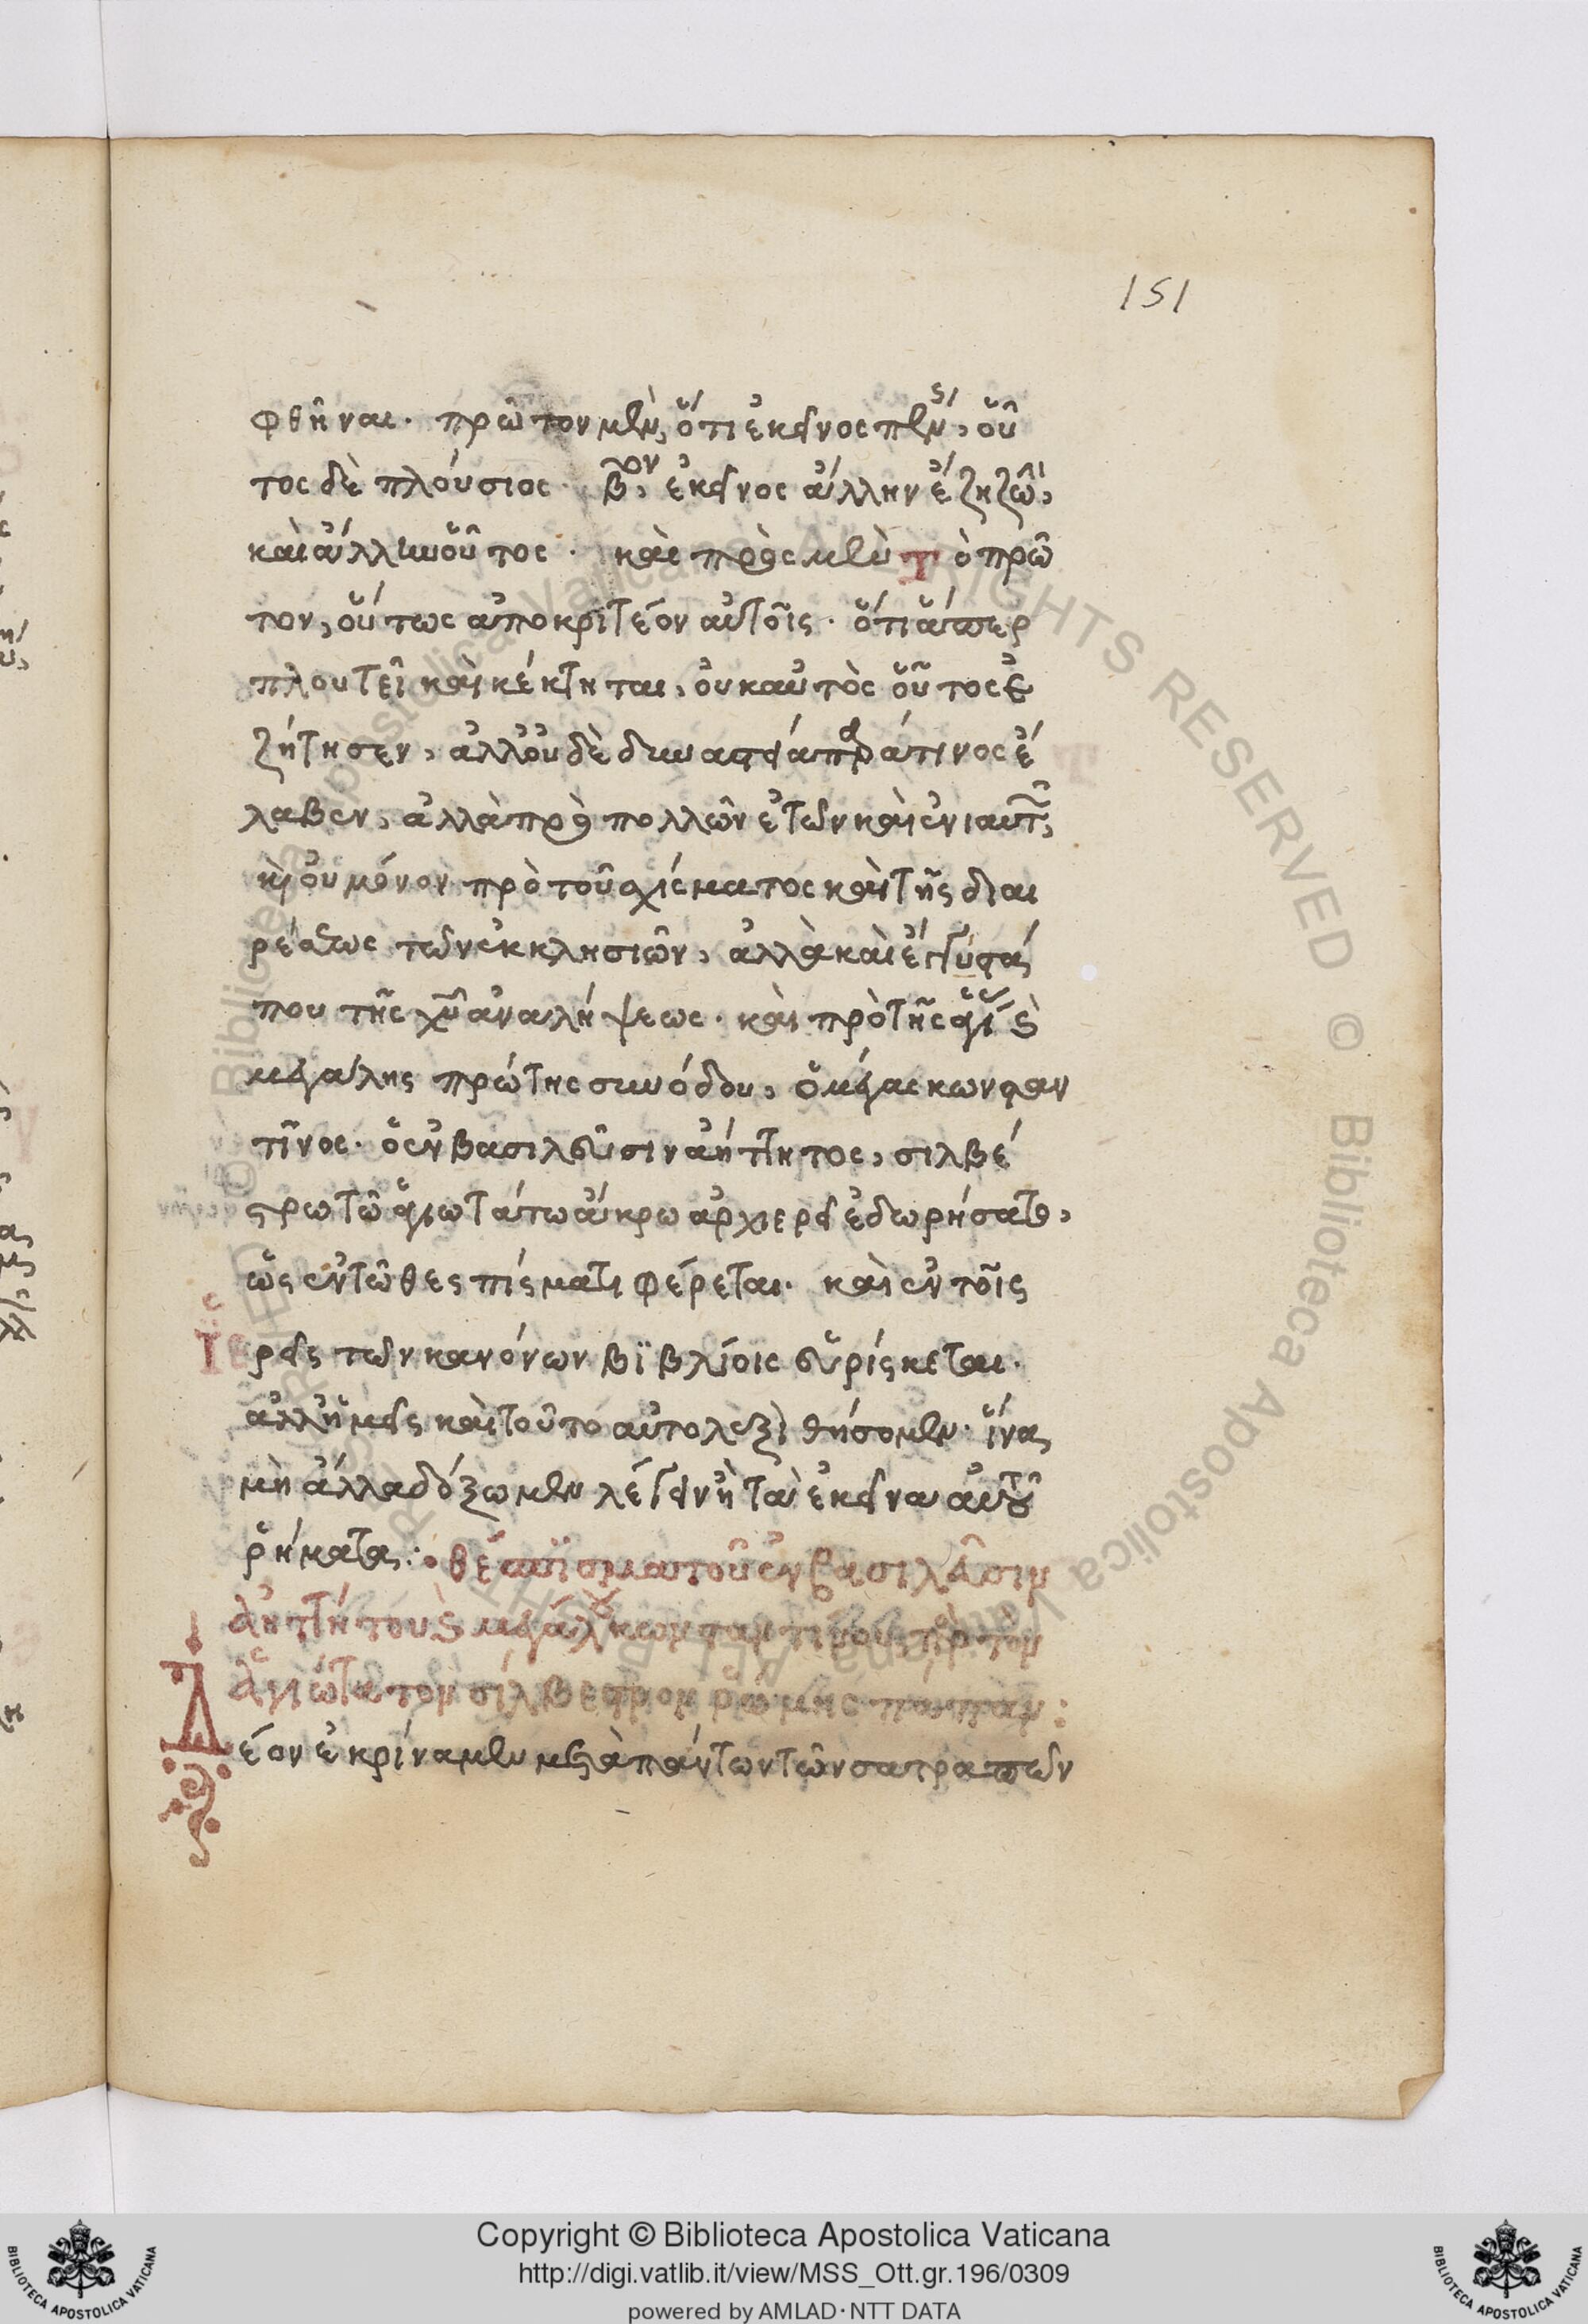 151
φθῆναι· πρῶτον μὲν, ὅτι ἐκεῖνος πένης, οὗ
τος δὲ πλούσιος· βον, ἐκεῖνος ἄλλην ἔζη ζωὴν,
καὶ ἄλλην οὗτος· καὶ πρὸς μὲν τὸ πρῶ
τον, οὕτως ἀποκριτέον αὐτοῖς· ὅτι ἅπερ
πλουτεῖ καὶ κέκτηται, οὐκ αὐτὸς οὗτος ἐ
ζήτησεν, ἀλλ' οὐδὲ δυναστείᾳ παρά τινος ἔ
λαβεν, ἀλλὰ πρὸ πολλῶν ἐτῶν καὶ ἐνιαυτῶν,
καὶ οὐ μόνον πρὸ τοῦ σχίσματος καὶ τῆς διαι
ρέσεως τῶν ἐκκλησιῶν, ἀλλὰ καὶ ἐγγύς
που τῆς χῦ ἀναλήψεως· καὶ πρὸ τῆς ἁγίας καὶ
μεγάλης πρώτης συνόδου, ὁ μέγας κωνσταν
τῖνος· ὁ ἐν βασιλεῦσιν ἀήττητος, σιλβέ
στρω τῶ ἁγιωτάτω ἄκρω ἀρχιερεῖ ἐδωρήσατο,
ὡς ἐν τῶ θεσπίσματι φέρεται· καὶ ἐν τοῖς
ἱεροῖς τῶν κανόνων βιβλίοις εὑρίσκεται·
ἀλλ' ἡμεῖς καὶ τοῦτο αὐτολεξὶ θήσομεν· ἵνα
μὴ ἄλλα δόξωμεν λέγειν ἢ τὰ ἐκεῖνα αὐτοῦ
ῥήματα:· θέσπισμα τοῦ ἐν βασιλεῦσιν
ἀηττήτου καὶ μεγάλου κωνσταντίνου πρὸς τὸν
ἁγιώτατον σίλβεστρον ῥώμης πάππαν:
Δέον ἐκρίναμεν μετὰ πάντων τῶν σατραπῶν
Copyright © Biblioteca Apostolica Vaticana
http://digi.vatlib.it/view/MSS_Ott.gr.196/0309
powered by AMLAD·NTT DATA